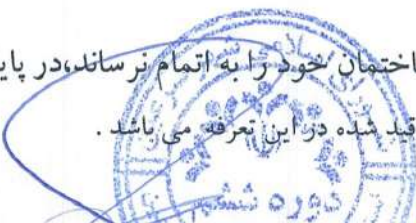 اختمان خود را به اتمام نرساند،در پای
قید شده در این تعرفه می باشد .
دوره ششم